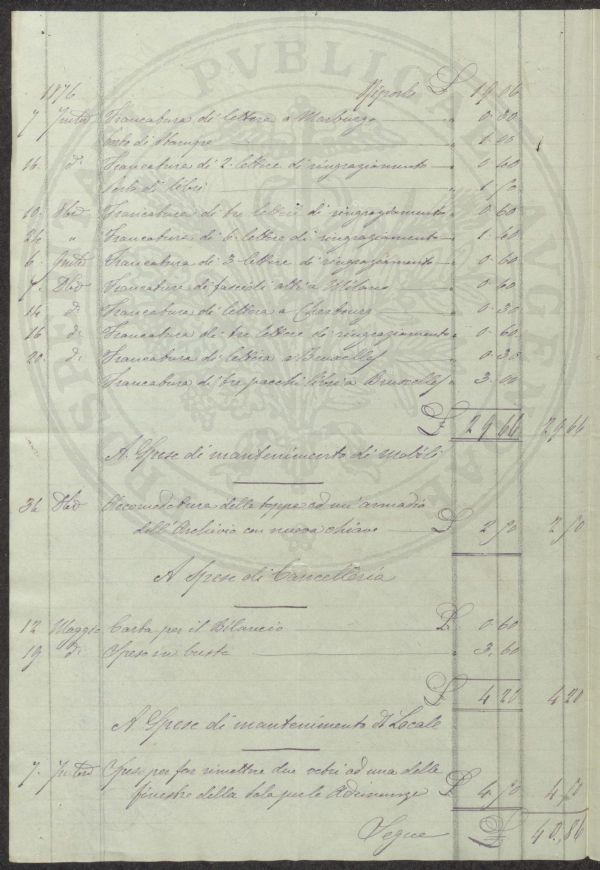 1876 Riporto L 19.16
7 Francatura di lettera a Marburgo 0.30
Porto di Stampe 1.
16 d.i Francatura di 2 lettere di ringraziamento 0.60
Porto di libri
10 Francatura di tre lettere di ringraziamento 0.60
24 " Francatura di 6 lettere di ringraziamento 1.60
6 Francatura di 3 lettere di ringraziamento 0.60
7 Francatura di fascicoli atti a Milano 0.60
14 d.i Francatura di lettera a Cherbourg 0.30
16 d.i Francatura di tre lettere di ringraziamento 0.60
20 d.i Francatura di lettera a Bruxelles 0.30
Francatura di tre pacchi libri a Bruxelles 3.00
L 29.66 29.66
A Spese di mantenimento di Mobili
Accomodatura della toppa ad un'armadio
dell'Archivio con nuova chiave L 2.50 2.50
A Spese di Cancelleria
12 Maggio Carta per il Bilancio L 0.60
19 d.i Spesa in buste 3.60
L 4.20 4.20
A Spese di mantenimento di Locale
7. Spese per far rimettere due vetri ad una delle
finestre della Sala per le Adunanze L 4.50 4.50
Segue L 40.86
PVBLICAE AVGENDAE